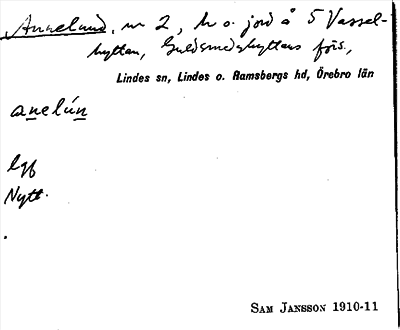 Anneland, nr 2, h o. jord å S Vassel-
hyttan, Guldsmedshyttans förs.,
Lindes sn, Lindes o. Ramsbergs hd, Örebro län
anelún
lgf
Nytt.
SAM JANSSON 1910-11